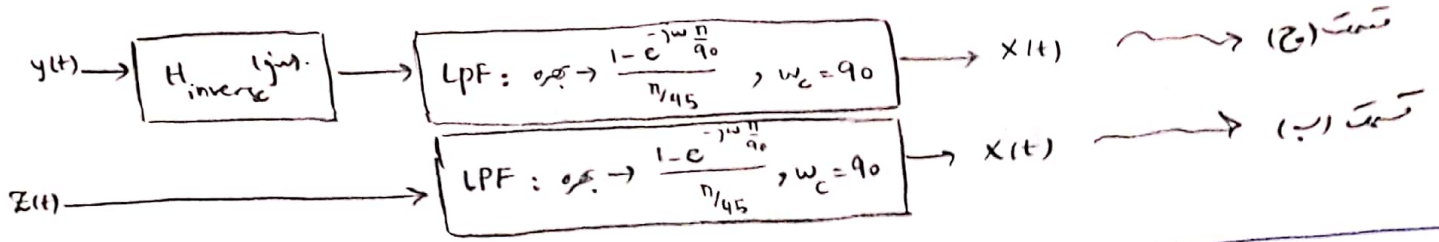 y(t) → H_inverse (jω). → LPF : بهره → (1-e^(-jω π/90))/(π/45) , ω_c = 90 → X(t) قسمت (ج)
Z(t) → LPF : بهره → (1-e^(-jω π/90))/(π/45) , ω_c = 90 → X(t) قسمت (ب)